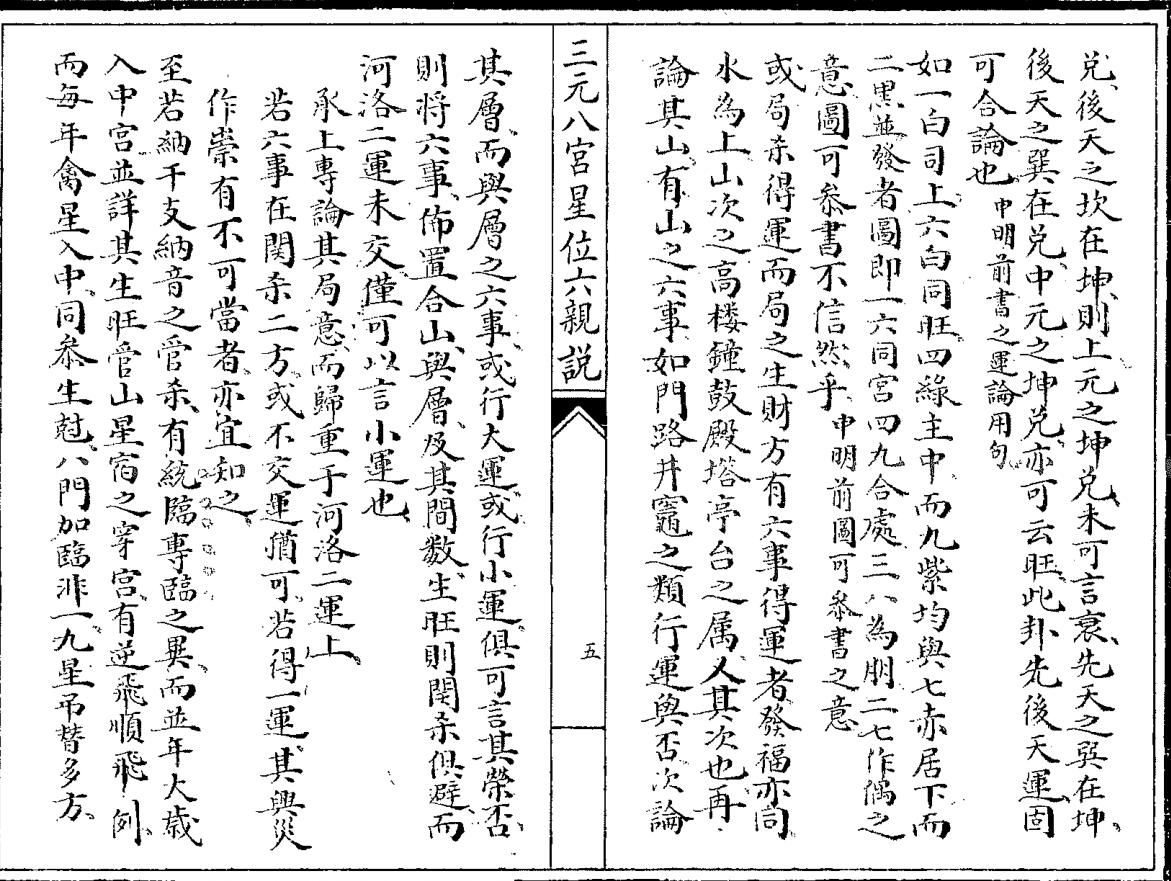 兑後天之坎在坤則上元之坤兑未可言衰先天之巽在坤
後天之巽在兑中元之坤兑亦可云旺此卦先後天運固
可合論也 申明前書之運論用句
如一白司上六白同旺四緑主中而九紫均與七赤居下而
二黒並發者圖即一六同宮四九合處三八為朋二七作偶之
意圖可參書不信然乎 申明前圖可參書之意
或局杀得運而局之生財方有六事得運者發福亦同
水為上山次之高楼鐘鼓殿塔亭台之属人其次也再
論其山有山之六事如門路井竈之類行運與否次論
三元八宮星位六親説
五
其層而與層之六事或行大運或行小運俱可言其榮否
則将六事佈置合山與層及其間数生旺則関杀俱避而
河洛二運未交僅可以言小運也
承上專論其局意而歸重于河洛二運上
若六事在関杀二方或不交運猶可若得一運其興災
作祟有不可當者亦宜知之
至若納干支納音之管杀有統臨專臨之異而並年大歳
入中宮並詳其生旺管山星宿之穿宮有逆飛順飛例
而每年禽星入中同参生尅八門加臨非一九星吊替多方